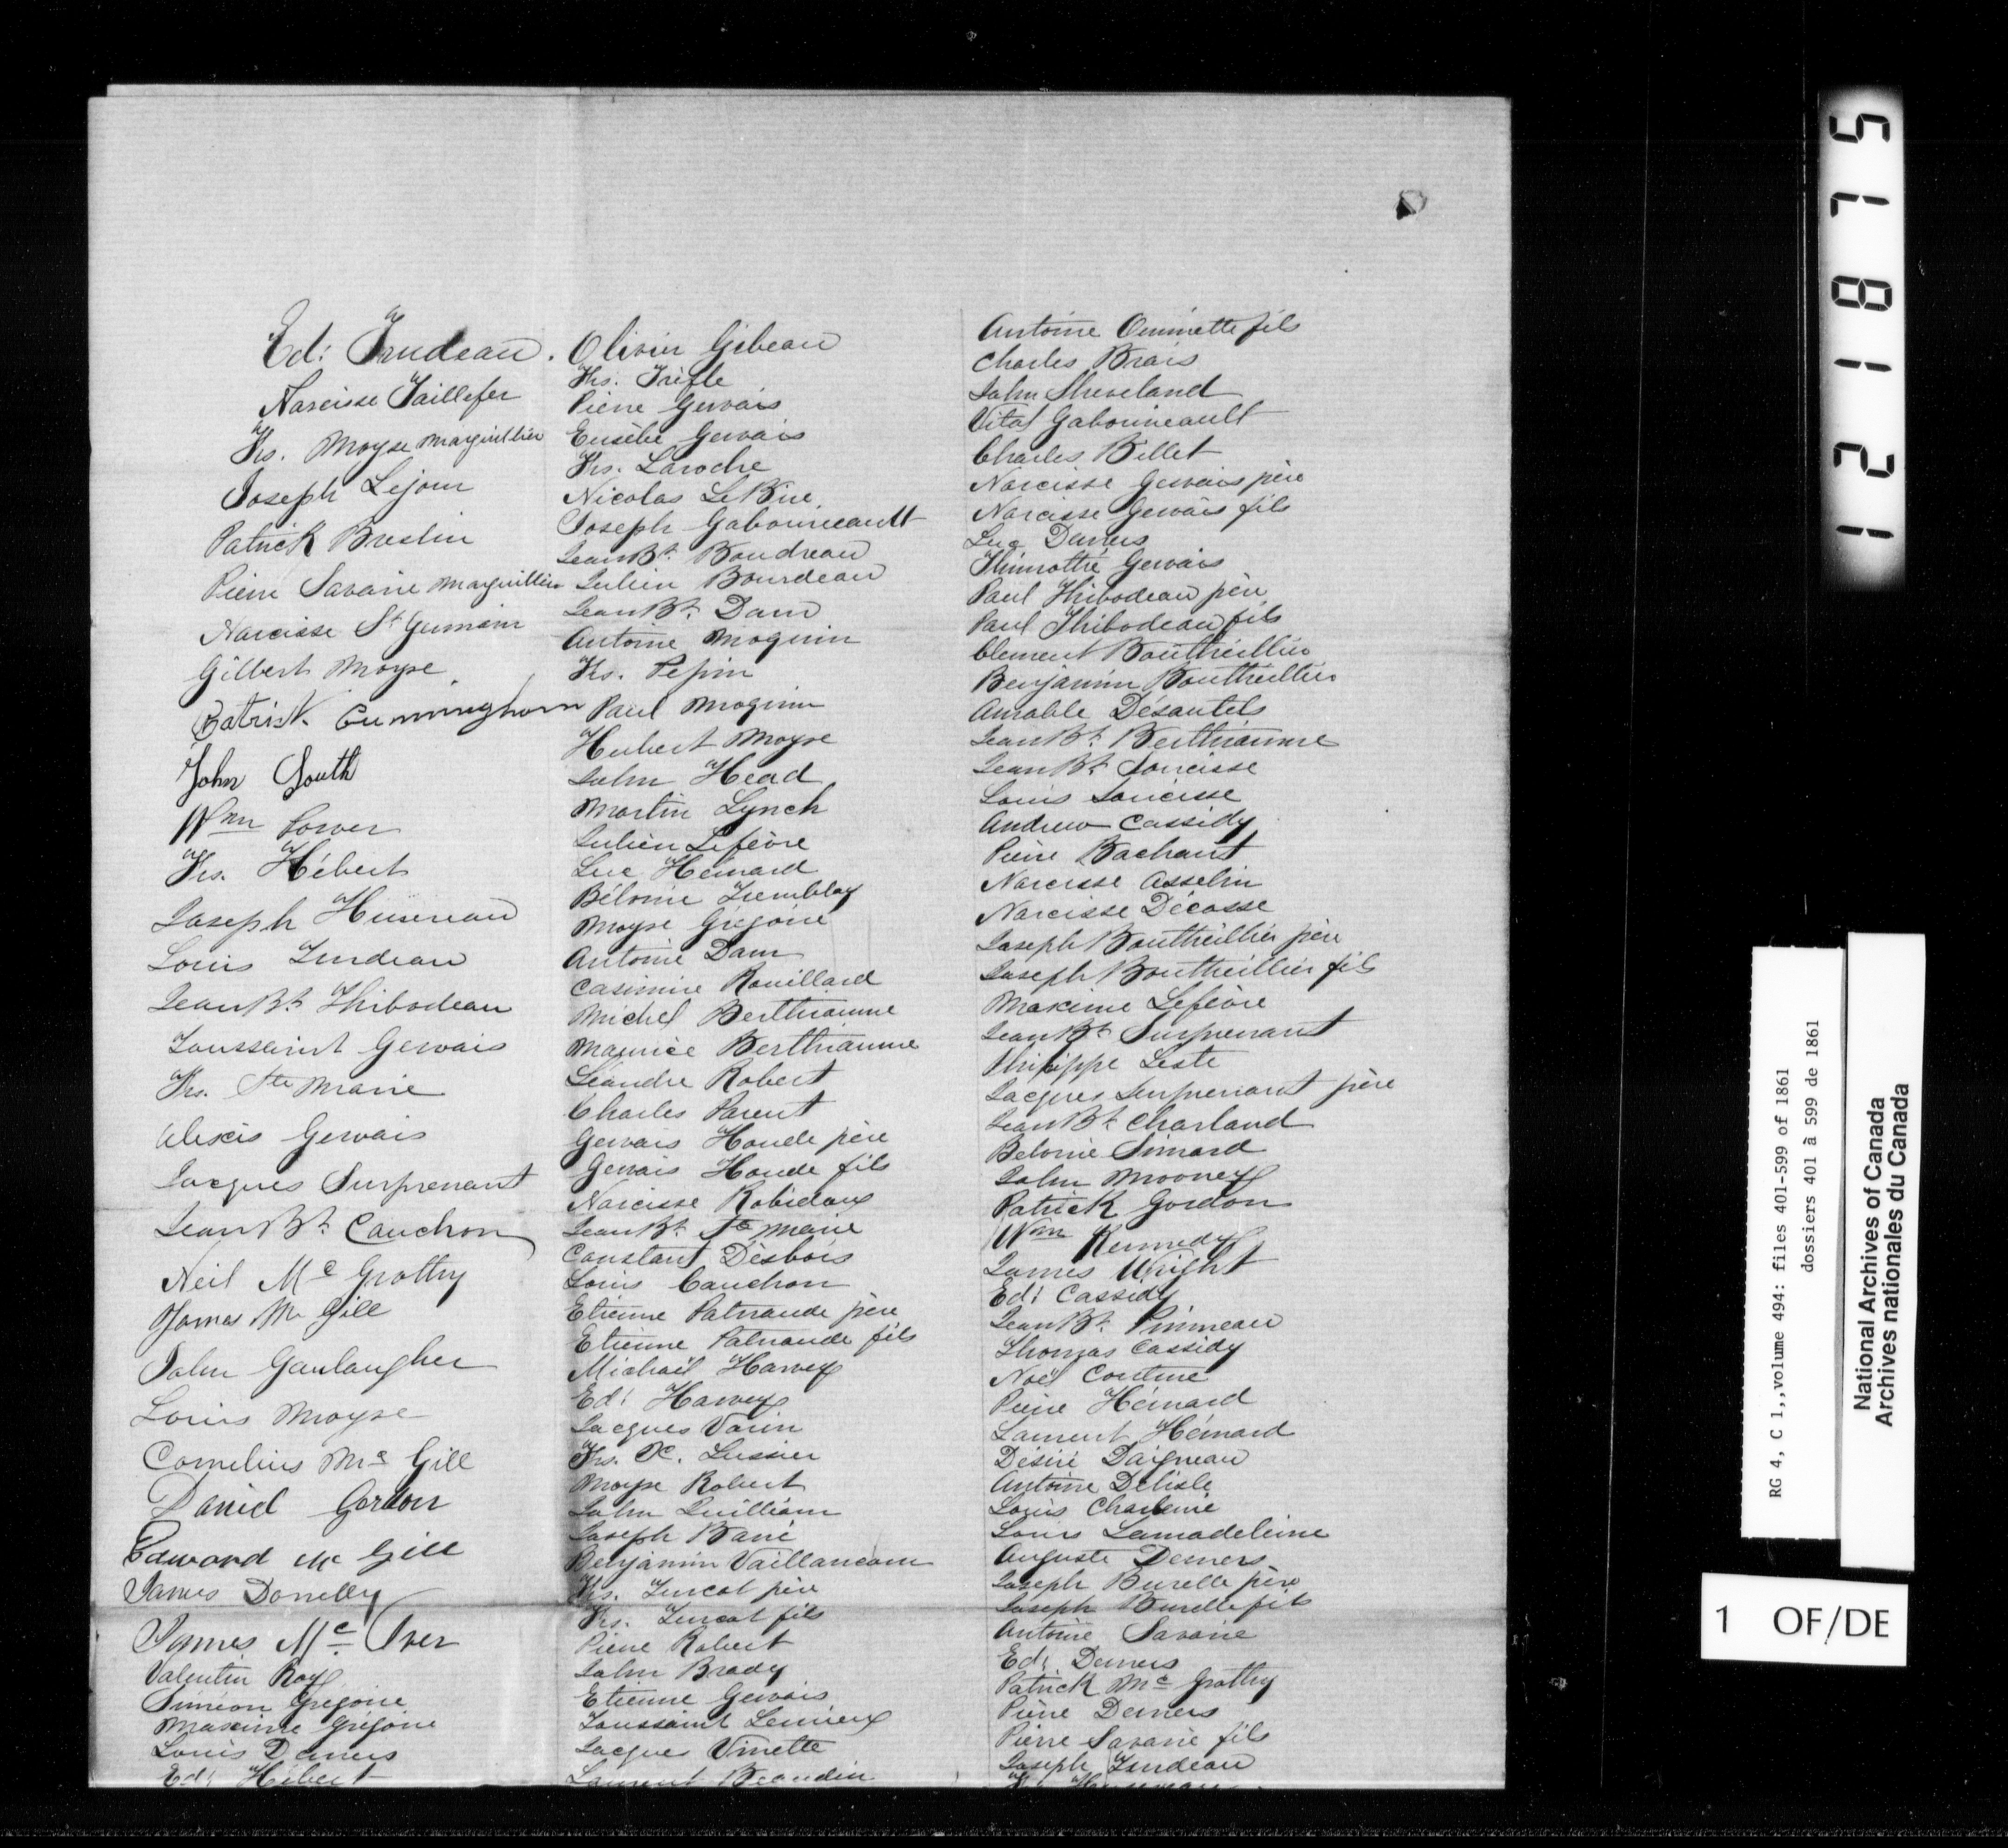 Ed: Trudeau.
Narcisse Taillefer
Frs. Moyse Marguillier
Joseph Lejour
Patrick Breslin
Pierre Savarie Marguillier
Narcisse St Germain
Gilbert Moyse
Patrick Cunningham
John South
Wm Power
Frs. Hébert
Joseph Huneau
Louis Trudeau
Jean Bt Thibodeau
Toussaint Gervais
Frs. Ste Marie
Alexis Gervais
Jacques Surprenant
Jean Bt. Cauchon
Neil Mc Grothy
James Mc Gill
John Gaulaugher
Louis Moyse
Cornelius Mc Gill
David Gordon
Edward Mc Gill
James Donnelly
James Mc Iver
Valentin Roy
Siméon Grégoire
Maxime Grégoire
Louis Demers
Ed: Hébert
Olivier Gibeau
Frs. Trèfle
Pierre Gervais
Eusèbe Gervais
Frs. Laroche
Nicolas LeBire
Joseph Gabourieault
Jean Bt. Boudreau
Julien Bourdeau
Jean Bt. Dam
Antoine Moquin
Frs. Pepin
Paul Moquin
Hubert Moyse
John Head
Martin Lynch
Julien Lefèvre
Luc Hémard
Béloni Tremblay
Moyse Grégoire
Antoine Dam
Casimire Rouillard
Michel Berthiaume
Maurice Berthiaume
Léandre Robert
Charles Parent
Gervais Houde père
Gervais Houde fils
Narcisse Robidoux
Jean Bt. Ste Marie
Constant Desbois
Louis Cauchon
Etienne Patnaude père
Etienne Patnaude fils
Michaël Harvey
Ed: Harvey
Jacques Varin
Frs. X. Lussier
Moyse Robert
John Quilliam
Joseph Barié
Benjamin Vaillancour
Frs. Turcot père
Frs. Turcot fils
Pierre Robert
John Brady
Etienne Gervais
Toussaint Lemieux
Jacques Vinette
Laurent Beaudin
Antoine Ouimette fils
Charles Brais
John Shreeland
Vital Gabourieault
Charles Billet
Narcisse Gervais père
Narcisse Gervais fils
Luc Demers
Thimothé Gervais
Paul Thibodeau père
Paul Thibodeau fils
Clement Boutheillier
Benjamin Bouthellier
Amable Désautels
Jean Bt. Berthiaume
Jean Bt. Narcisse
Louis Narcisse
Andrew Cassidy
Pierre Bachant
Narcisse Asselin
Narcisse Décosse
Joseph Boutheillier père
Joseph Boutheillier fils
Maxime Lefèvre
Jean Bt Surprenant
Philippe Leste
Jacques Surprenant père
Jean Bt Charland
Belonie Simard
John Mooney
Patrick Gordon
Wm Kennedy
James Wright
Ed: Cassidy
Jean Bt. Pinineau
Thomas Cassidy
Noël Couture
Pierre Hémard
Laurent Hémard
Désiré Daigneau
Antoine Delisle
Louis Charlerie
Louis Lamadeleine
Auguste Demers
Joseph Burelle père
Joseph Burelle fils
Antoine Savarie
Ed: Demers
Patrick Mc Grothy
Pierre Demers
Pierre Savarie fils
Joseph Trudeau
121875
RG 4, C 1,,volume 494: files 401-599 of 1861
dossiers 401 à 599 de 1861
National Archives of Canada
Archives nationales du Canada
1 OF/DE